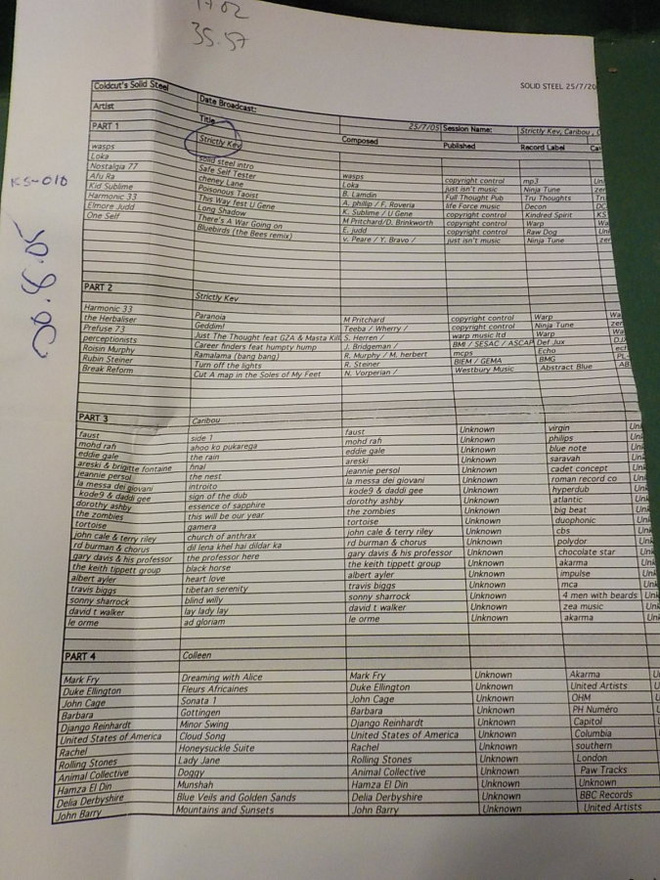 35.57
SOLID STEEL 25/7/20
Coldcut's Solid Steel
Date Broadcast:
25/7/05 Session Name: Strictly Kev, Caribou, C
Artist Title Composed Published Record Label Ca
PART 1 Strictly Kev
wasps solid steel intro wasps copyright control mp3 Un
Loka Safe Self Tester Loka just isn't music Ninja Tune zen
Nostalgia 77 cheney Lane B. Lamdin Full Thought Pub Tru Thoughts
Afu Ra Poisonous Taoist A. phillip / F. Roveria life Force music Decon
Kid Sublime This Way fest U Gene K. Sublime / U Gene copyright control Kindred Spirit KS
Harmonic 33 Long Shadow M Pritchard/D. Brinkworth copyright control Warp Wa
Elmore Judd There's A War Going on E. judd copyright control Raw Dog
One Self Bluebirds (the Bees remix) v. Peare / Y. Bravo / just isn't music Ninja Tune zen
KS-010
30.8.05
PART 2 Strictly Kev
Harmonic 33 Paranoia M Pritchard copyright control Warp Wa
the Herbaliser Geddim! Teeba / Wherry / copyright control Ninja Tune zen
Prefuse 73 Just The Thought feat GZA & Masta Kill S. Herren / warp music ltd Warp Wa
perceptionists Career finders feat humpty hump J. Bridgeman / BMI / SESAC / ASCAP Def Jux
Roisin Murphy Ramalama (bang bang) R. Murphy / M. herbert mcps Echo ech
Rubin Steiner Turn off the lights R. Steiner BIEM / GEMA BMG PL-
Break Reform Cut A map in the Soles of My Feet N. Vorperian / Westbury Music Abstract Blue AB
PART 3 Caribou
faust side 1 faust Unknown virgin Unk
mohd rafi ahoo ko pukarega mohd rafi Unknown philips Unk
eddie gale the rain eddie gale Unknown blue note Unk
areski & brigitte fontaine final areski Unknown saravah Unk
jeannie persol the nest jeannie persol Unknown cadet concept Unk
la messa dei giovani introito la messa dei giovani Unknown roman record co Unk
kode9 & daddi gee sign of the dub kode9 & daddi gee Unknown hyperdub Unk
dorothy ashby essence of sapphire dorothy ashby Unknown atlantic Unk
the zombies this will be our year the zombies Unknown big beat Unk
tortoise gamera tortoise Unknown duophonic Unk
john cale & terry riley church of anthrax john cale & terry riley Unknown cbs Unk
rd burman & chorus dil lena khel hai dildar ka rd burman & chorus Unknown polydor Unk
gary davis & his professor the professor here gary davis & his professor Unknown chocolate star Unk
the keith tippett group black horse the keith tippett group Unknown akarma Unk
albert ayler heart love albert ayler Unknown impulse Unk
travis biggs tibetan serenity travis biggs Unknown mca Unk
sonny sharrock blind willy sonny sharrock Unknown 4 men with beards Unk
david t walker lay lady lay david t walker Unknown zea music Unk
le orme ad gloriam le orme Unknown akarma Unk
PART 4 Colleen
Mark Fry Dreaming with Alice Mark Fry Unknown Akarma U
Duke Ellington Fleurs Africaines Duke Ellington Unknown United Artists U
John Cage Sonata 1 John Cage Unknown OHM U
Barbara Gottingen Barbara Unknown PH Numéro U
Django Reinhardt Minor Swing Django Reinhardt Unknown Capitol U
United States of America Cloud Song United States of America Unknown Columbia U
Rachel Honeysuckle Suite Rachel Unknown southern U
Rolling Stones Lady Jane Rolling Stones Unknown London U
Animal Collective Doggy Animal Collective Unknown Paw Tracks U
Hamza El Din Munshah Hamza El Din Unknown Unknown U
Delia Derbyshire Blue Veils and Golden Sands Delia Derbyshire Unknown BBC Records U
John Barry Mountains and Sunsets John Barry Unknown United Artists U